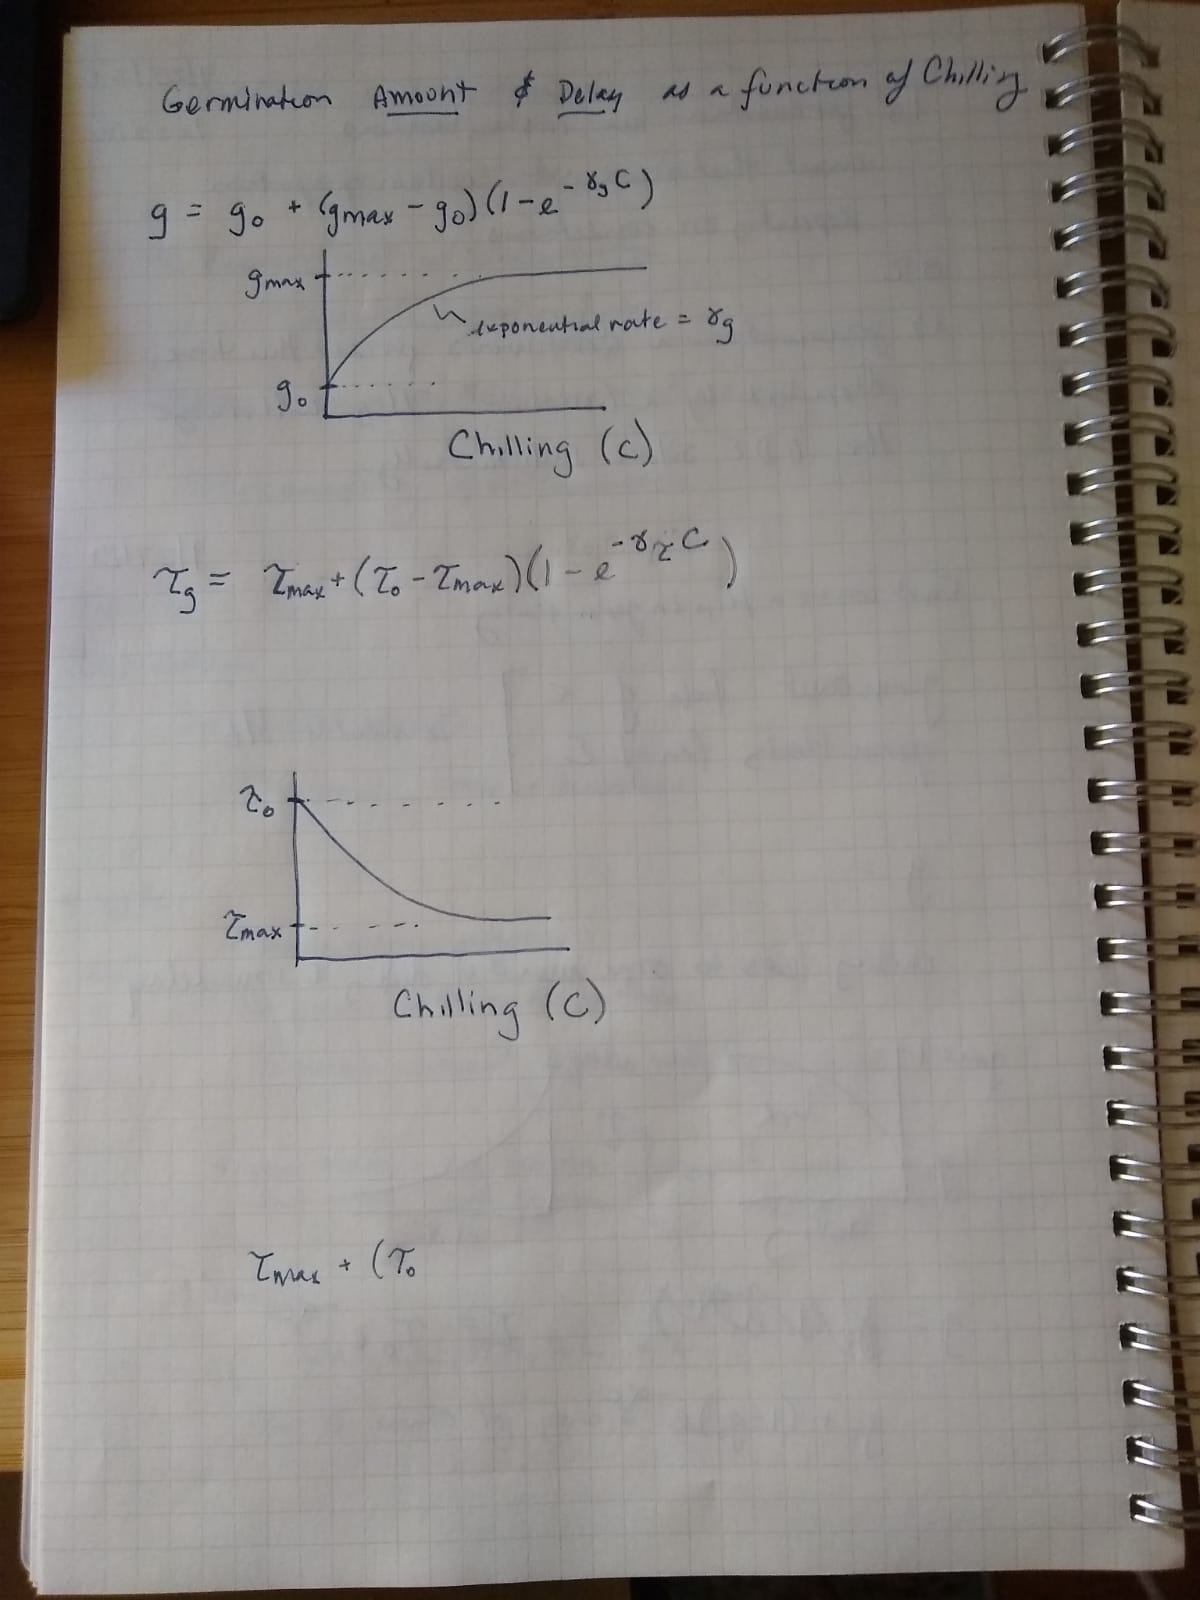 Germination Amount & Delay as a function of Chilling
g = g₀ + (gmax - g₀)(1-e^-γgC)
gmax
exponential rate = γg
g₀
Chilling (C)
τg = τmax+(τ₀ - τmax)(1-e^-γτC)
τ₀
τmax
Chilling (C)
τmax + (τ₀